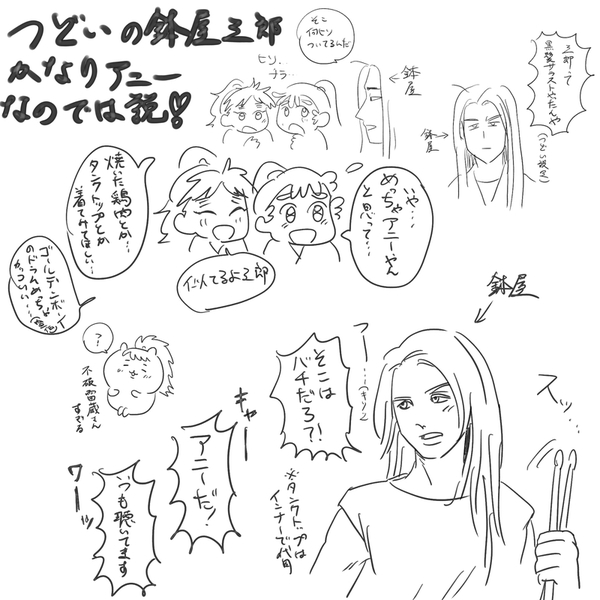 つどいの鉢屋三郎
かなりアニー
なのでは説♡
そこ
何ヒソ
ついてるんだ
ヒソ..
ヲラ..
鉢屋
三郎って
黒髪サラストやたんや
(つどい設定)
鉢屋
いや…
めっちゃアニーやん
と思って…
焼いた鶏肉とか…
タンクトップとか
着てみてほしい…
似てるよ三郎
ゴールデンボーイ
のドラムめっちゃ
かっこいい…
?
不破雷蔵さん
すぎる
鉢屋
スッ…
そこは
バチだろ?!
キャー
アニーだ!
ワーッ
いつも聴いてます
※タンクトップは
インナーで代用